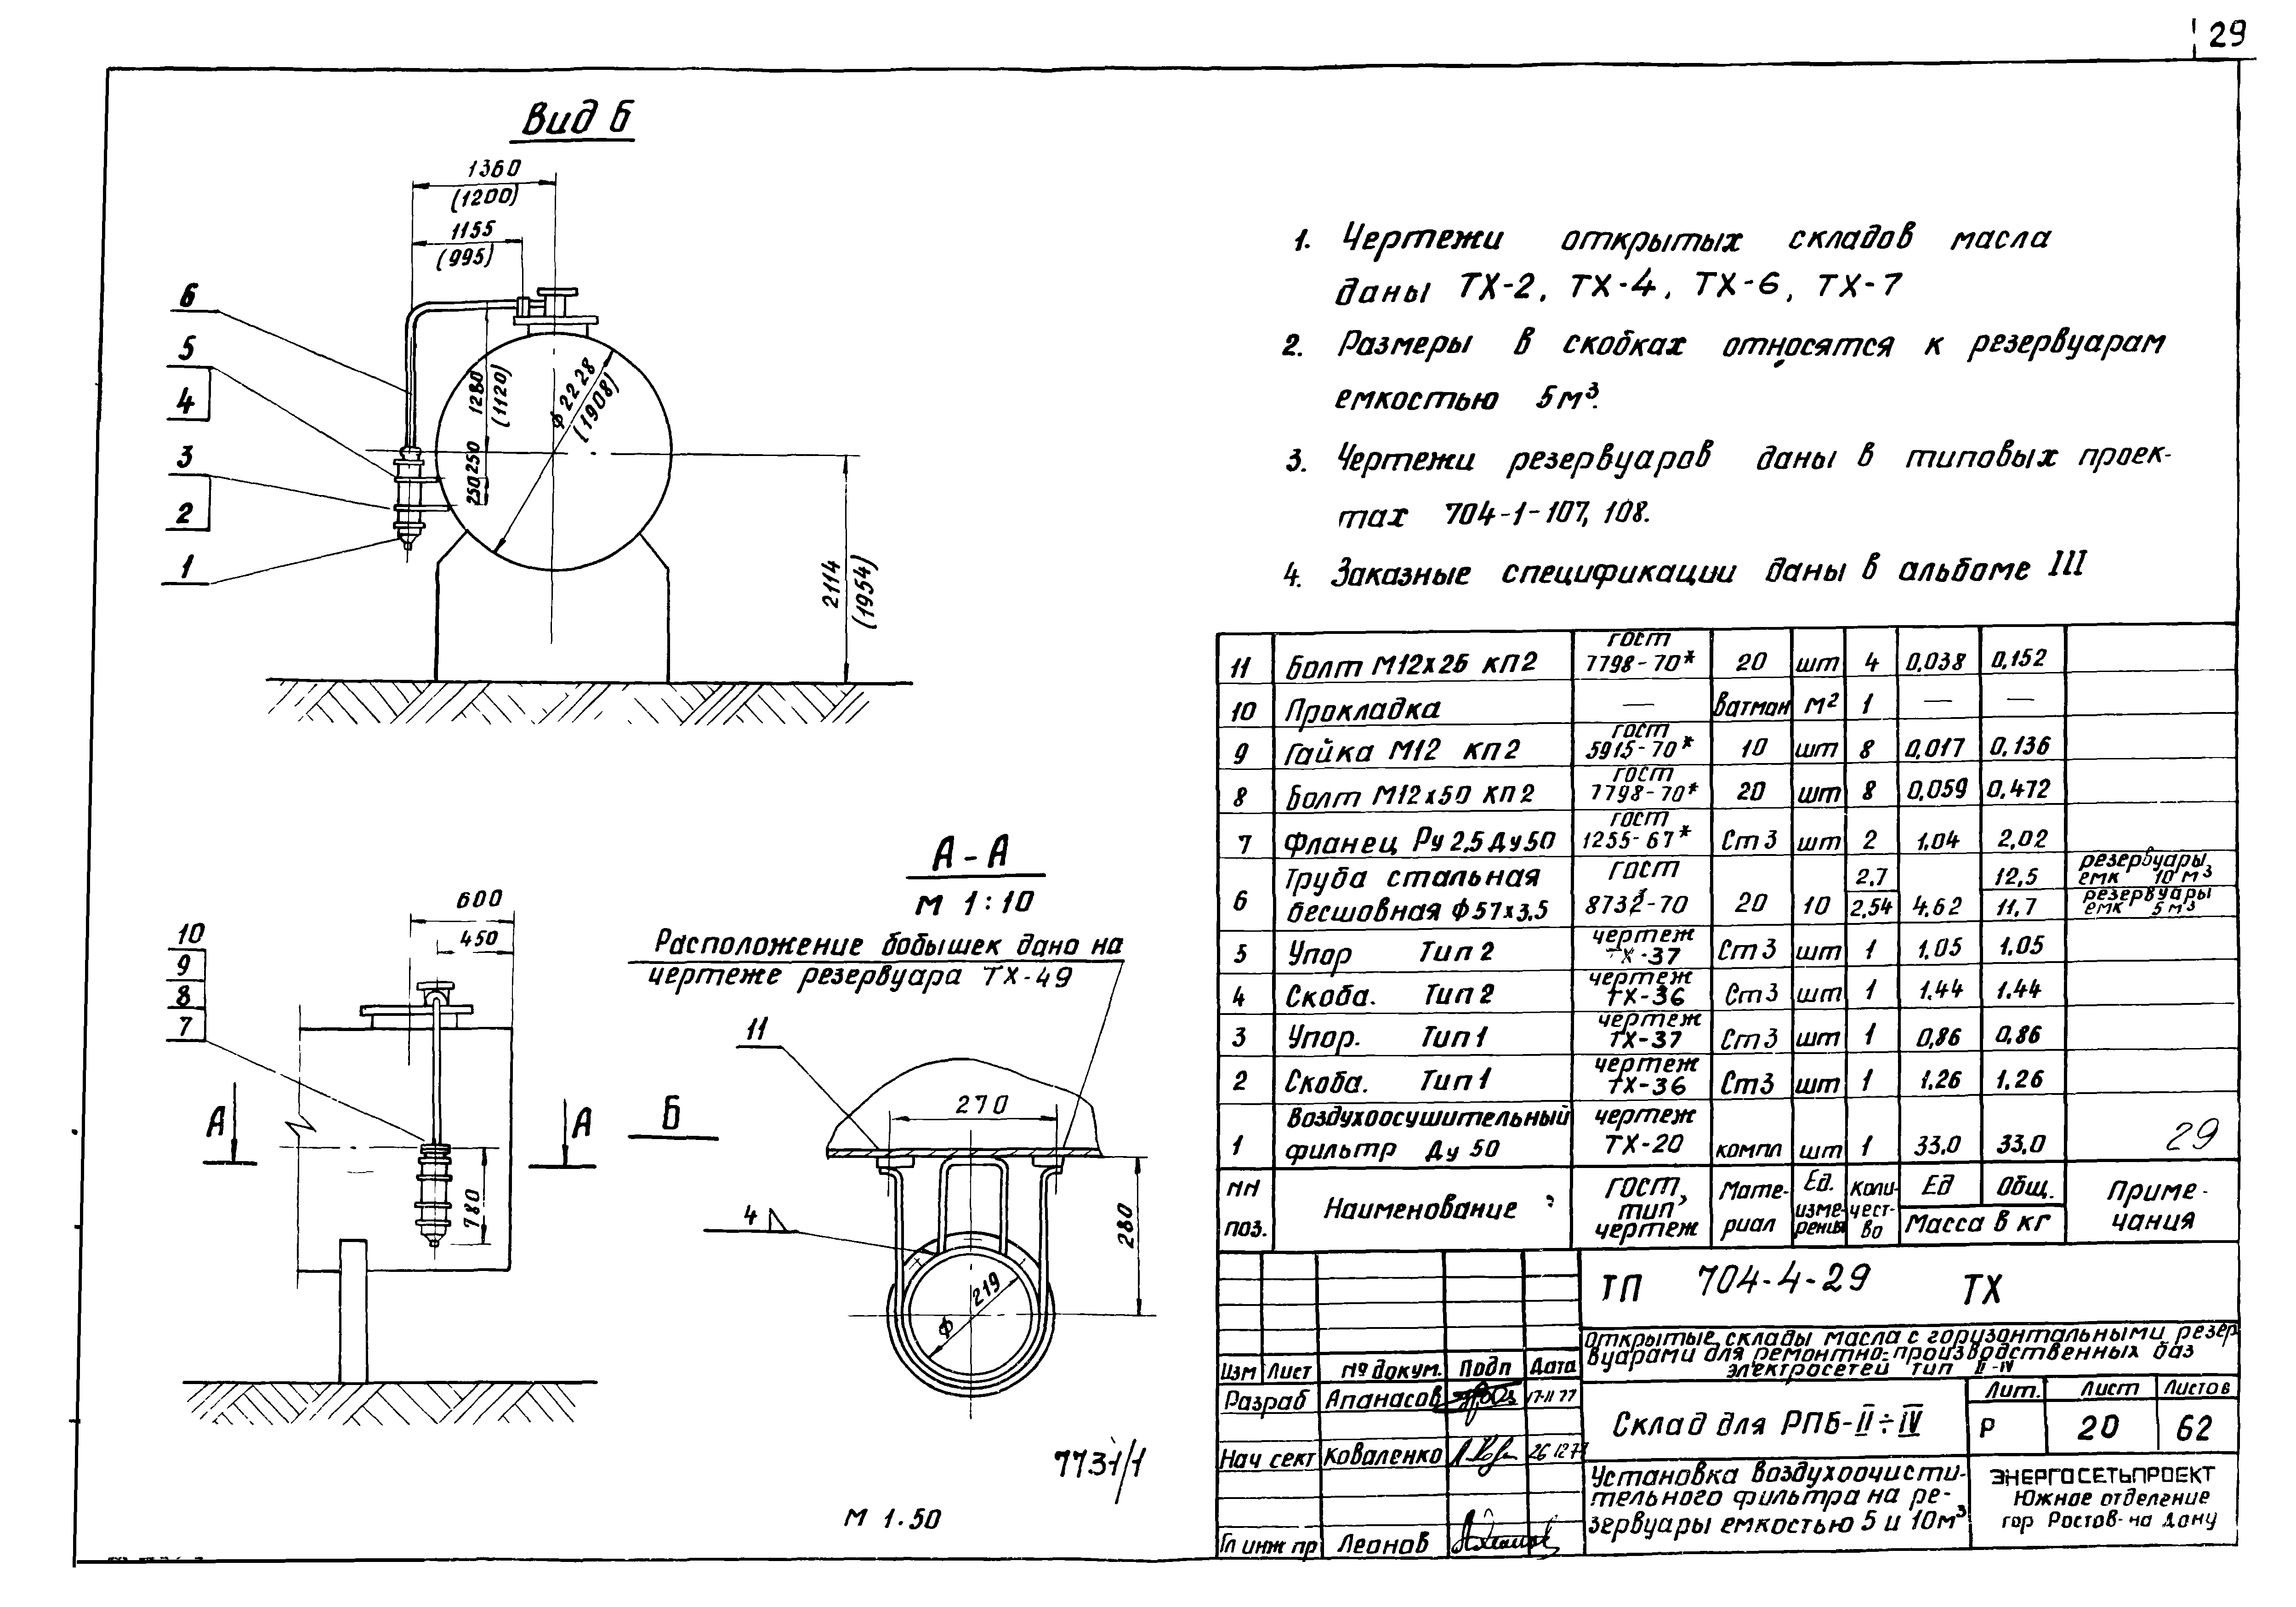 29
Вид Б
1360
(1200)
1155
(995)
6
5
4
3
2
1
1280
(1120)
250
250
ϕ 2228
(1908)
2114
(1954)
1. Чертежи открытых складов масла
даны ТХ-2, ТХ-4, ТХ-6, ТХ-7
2. Размеры в скобках относятся к резервуарам
емкостью 5м³.
3. Чертежи резервуаров даны в типовых проек-
тах 704-1-107, 108.
4. Заказные спецификации даны в альбоме III
600
450
10
9
8
7
А
А
Б
780
А-А
М 1:10
Расположение бобышек дано на
чертеже резервуара ТХ-49
11
270
280
4
ϕ 219
7731/1
М 1.50
11 Болт М12х26 КП2 ГОСТ 7798-70* 20 шт 4 0,038 0,152
10 Прокладка — Ватман м² 1 — —
9 Гайка М12 КП2 ГОСТ 5915-70* 10 шт 8 0,017 0,136
8 Болт М12х50 КП2 ГОСТ 7798-70* 20 шт 8 0,059 0,472
7 Фланец Ру 2,5 Ду50 ГОСТ 1255-67* Ст3 шт 2 1,04 2,02
Труба стальная ГОСТ 2,7 12,5 резервуары емк 10м³
6 бесшовная ϕ57х3,5 8732-70 20 10 2,54 4,62 11,7 резервуары емк 5м³
5 Упор Тип 2 чертеж ТХ-37 Ст3 шт 1 1.05 1.05
4 Скоба. Тип 2 чертеж ТХ-36 Ст3 шт 1 1.44 1.44
3 Упор. Тип 1 чертеж ТХ-37 Ст3 шт 1 0,86 0,86
2 Скоба. Тип 1 чертеж ТХ-36 Ст3 шт 1 1.26 1.26
Воздухоосушительный чертеж
1 фильтр Ду 50 ТХ-20 компл шт 1 33.0 33.0 29
НН поз. Наименование ГОСТ, тип, чертеж Мате-риал Ед. изме-рения Коли-чест-во Ед Общ. Масса в кг Приме-чания
ТП 704-4-29 ТХ
Открытые склады масла с горизонтальными резер
вуарами для ремонтно-производственных баз
электросетей тип II-IV
Изм Лист № докум. Подп Дата
Разраб Апанасов 17-11 77
Нач сект Коваленко 26 12 77
Гл инж пр Леонов
Склад для РПБ-II÷IV
Лит. Лист Листов
Р 20 62
Установка воздухоочисти-
тельного фильтра на ре-
зервуары емкостью 5 и 10м³
ЭНЕРГОСЕТЬПРОЕКТ
Южное отделение
гор Ростов-на Дону